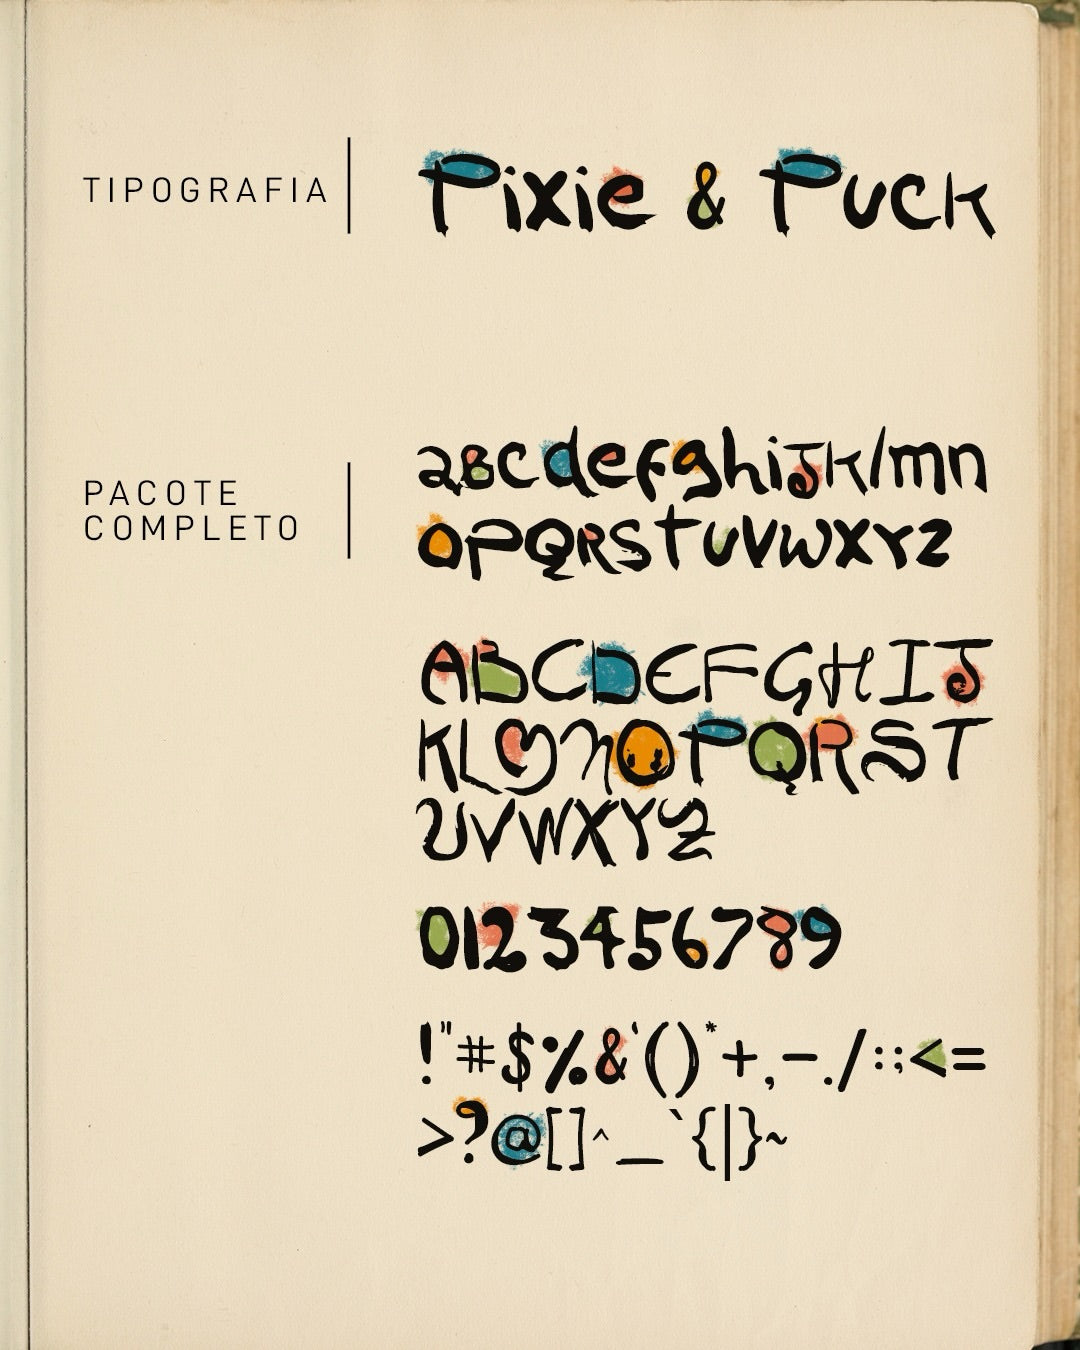 TIPOGRAFIA
Pixie & Puck
PACOTE
COMPLETO
aBcdefghiJKlmn
OPQRSTUVWXYZ
ABCDEFGHIJ
KLMNOPQRST
UVWXYZ
0123456789
!"#$%&'()*+,-./:;<=
>?@[]^_`{|}~